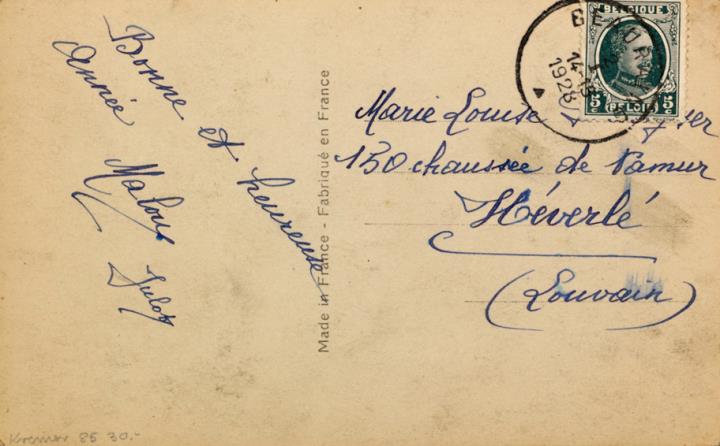 Bonne et heureuse
année
Malou
Julot
Made in France - Fabriqué en France
BELGIQUE
5c 5c
BELGIË
14-15
1928
Marie Louise
150 chaussée de Namur
Héverlé
(Louvain)
Kremer 85 30.-